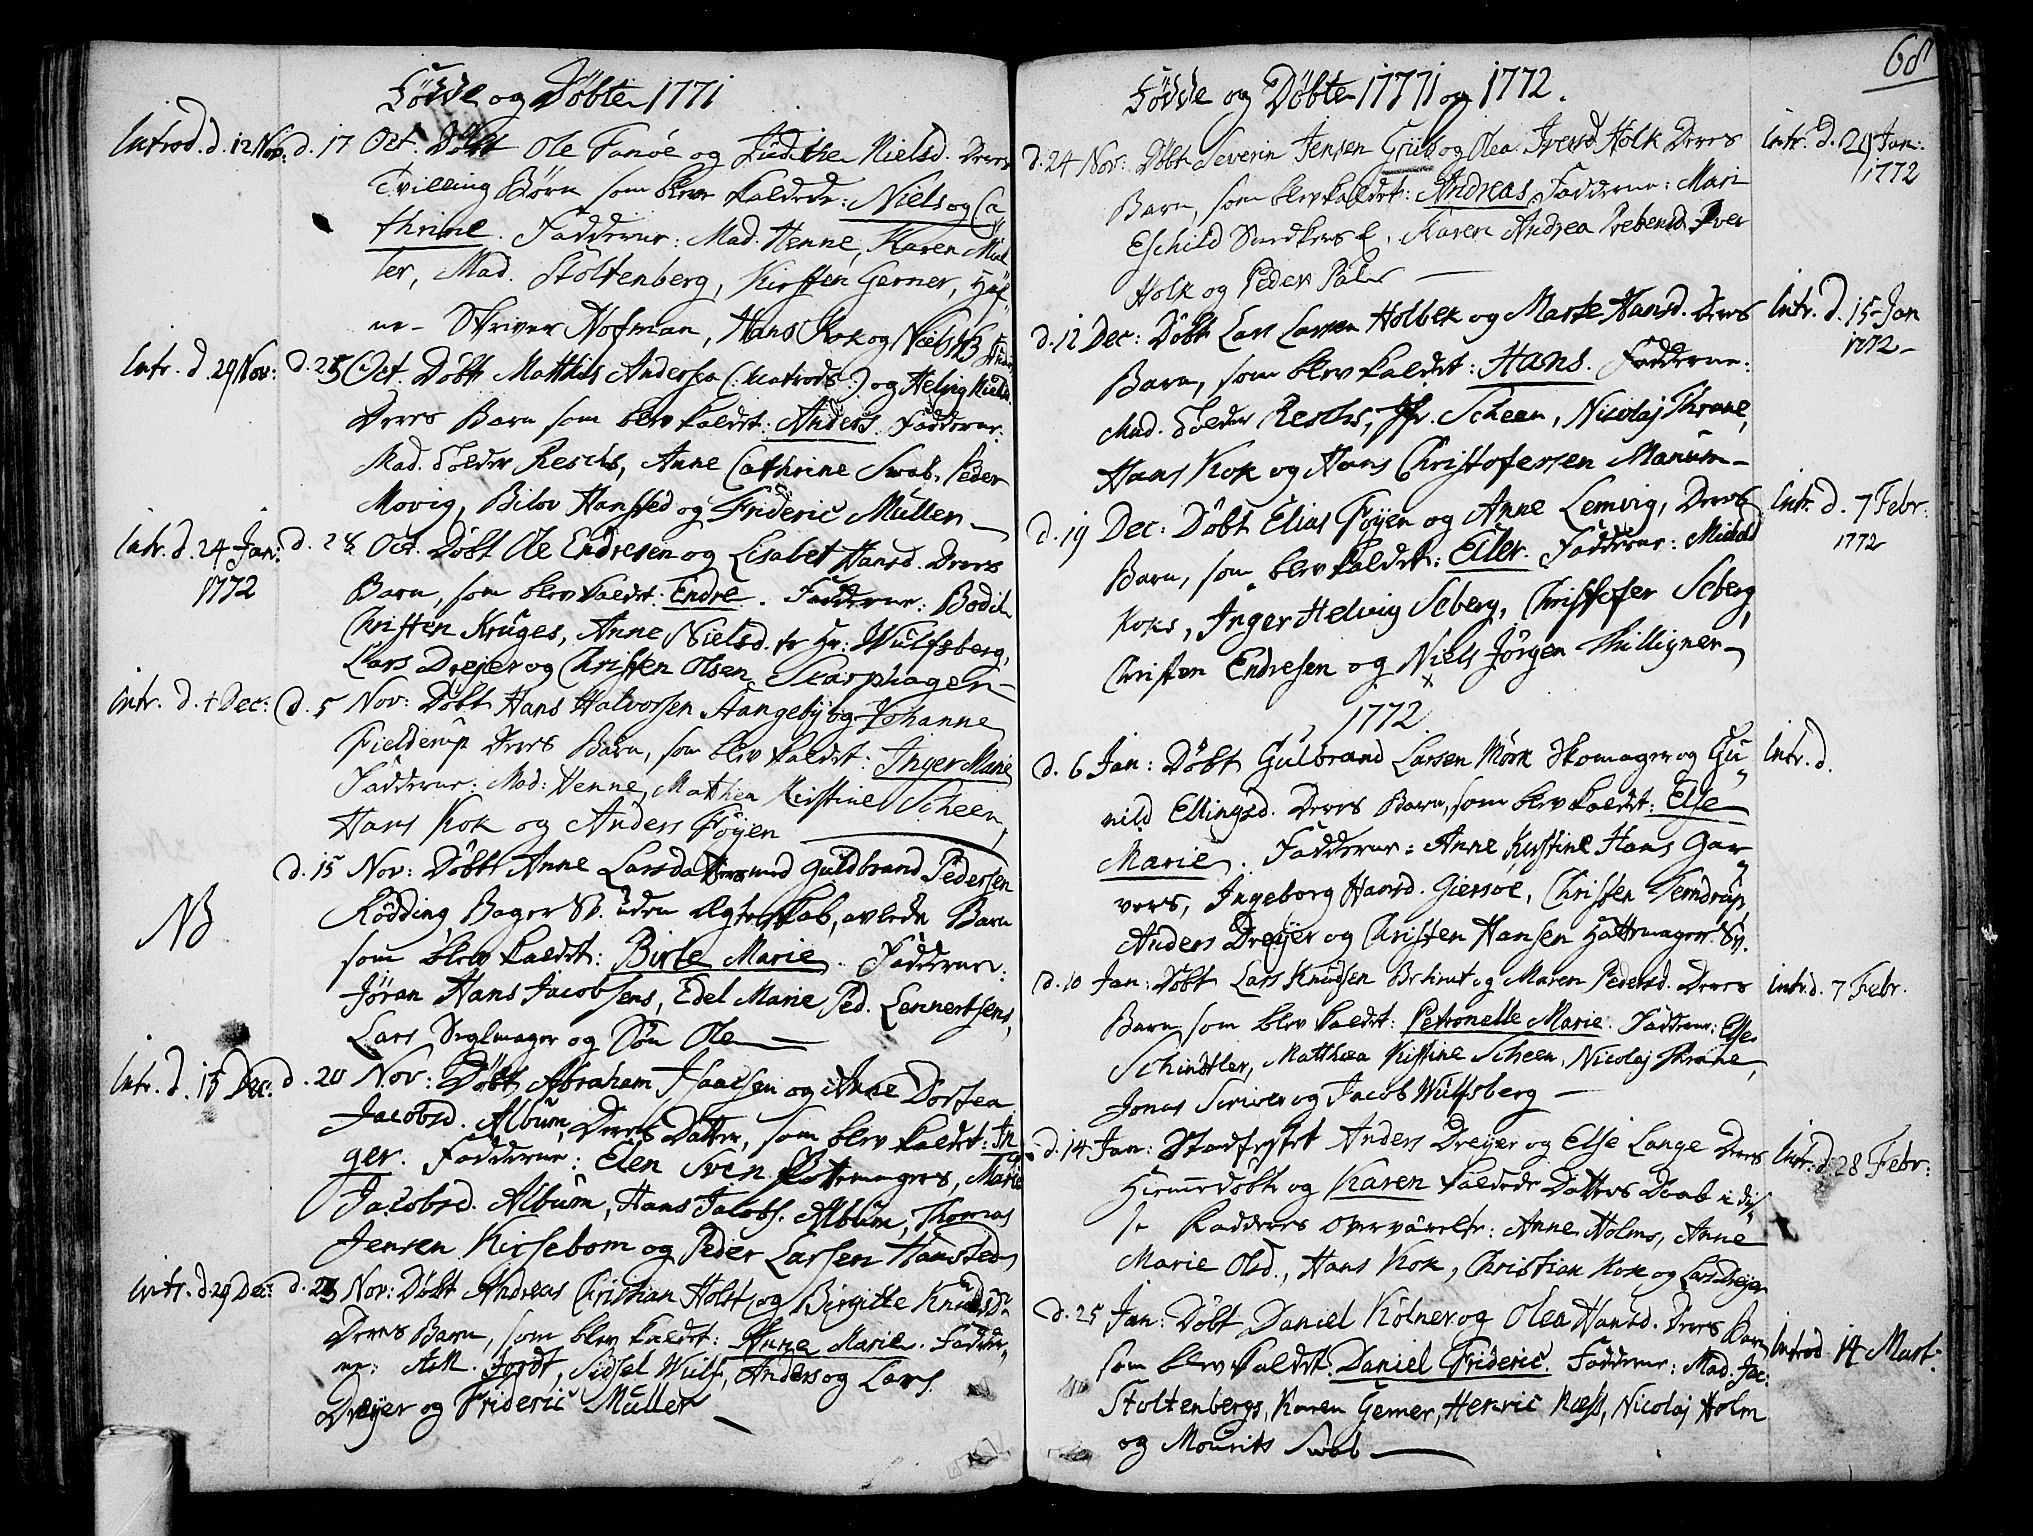 Födde og Döbte 1771
Introd. d. 12 Nov: d. 17 Oct. Döbt Ole Fanöe og Judithe Nielsd. Deres
Tvilling Börn som bleve kaldede: Niels og Ca
thrine. Fadderne: Mad. Henne, Karen Mül
ler, Mad. Stoltenberg, Kirsten Gerner, Haf
ne Skriver Hofman, Hans Kok og Niels
Intr. d. 29 Nov: d. 25 Oct. Döbt Matthis Andersen (: Matros :) og Helvig Nielsd.
Deres Barn som blev kaldet: Anders. Fadderne:
Mad. Tolder Reschs, Anne Cathrine Swab, Peder
Movig, Bilov Hansted og Frideric Müller
Intr. d. 24 Jan: 1772 d. 28 Oct. Döbt Ole Endresen og Lisabet Hansd. Deres
Barn, som blev kaldet: Endre. Fadderne: Bodil
Christen Krüges, Anne Nielsd. fr Hr: Wulfsberg,
Lars Dreyer og Christen Olsen Skarphagen
Intr. d. 4 Dec: d. 5 Nov: Döbt Hans Halvorsen Aangeby og Johanne
Fielderup Deres Barn, som blev kaldet: Inger Marie
Fadderne: Mad: Henne, Mathea Kirstine Scheen,
Hans Kok og Anders Föyen
d. 15 Nov: Döbt Anne Larsdatters med Guldbrand Pedersen
NB Rödding Bager Sv. uden Ægteskab, avlede Barn
som blev kaldet: Birte Marie. Fadderne:
Jöran Hans Jacobsens, Edel Marie Ped. Lennertsens,
Lars Seglmager og Sön Ole
Intr. d. 15 Dec. d. 20 Nov: Döbt Abraham Isaacsen og Anne Dortea
Jacobsd. Album, Deres Datter, som blev kaldet: In
ger. Fadderne: Elen Sven Pottemagers, Marie
Jacobsd. Album, Hans Jacobs. Album, Thomas
Jensen Kirsebom og Peder Larsen Hansted
Intr. d. 29 Dec: d. 23 Nov: Döbt Andreas Christian Holst og Birgitte Knudsd.
Deres Barn, som blev kaldet: Anne Marie. Fadder
ne: Jordt, Sidsel Wulf, Anders og Lars
Dreyer og Frideric Müller
68
Födde og Döbte 1771 og 1772.
d. 24 Nov: Döbt Severin Jensen Grüb og Olea Iversd Holk Deres Intr. d. 29 Jan: 1772
Barn, som blev kaldet: Andreas. Fadderne: Mari
Eschild Snedkers E. Karen Andrea Prebensd. Iver
Holk og Peder Palm
d. 12 Dec: Döbt Lars Larsen Holbek og Marte Hansd. Deres Intr. d. 15 Jan 1772
Barn, som blev kaldet: Hans. Fadderne:
Mad. Tolder Reschs, Jfr. Scheen, Nicolaj Thrane,
Hans Kok og Hans Christofersen Manum
d. 19 Dec: Döbt Elias Föyen og Anne Lemvig, Deres Intr. d. 7 Febr. 1772
Barn, som blev kaldet: Eiler. Fadderne: Mickel
Koks, Inger Helvig Seberg, Christofer Seberg,
Christen Endresen og Niels Jörgen Thilligner
1772.
d. 6 Jan: Döbt Gulbrand Larsen Mörk Skomager og Gu Intr. d.
nild Ellingsd. Deres Barn, som blev kaldet: Else
Marie. Fadderne: Anne Kirstine Hans Gar
vers, Ingeborg Hansd. Giersöe, Christen Terndrup,
Anders Dreyer og Christen Hansen Hattemager Sv.
d. 10 Jan: Döbt Lars Knudsen Bekent og Maren Pedersd. Deres Intr. d. 7 Febr.
Barn som blev kaldet: Petronelle Marie. Fadderne: Else
Schindtler, Matthea Kistine Scheen, Nicolaj Thrane,
Jonas Scriver og Jacob Wulfsberg
d. 14 Jan: Stadfestet Anders Dreyer og Else Lange Deres Intr: d. 28 Febr:
Hiemmedöbte og Karen kaldede Datters Daab i dis
se Fadderes Overværelse: Anne Holms, Anne
Marie Olsd., Hans Kok, Christian Kok og Lars Dreyer
d. 25 Jan: Döbt Daniel Kölner og Olea Hansd. Deres Barn Introd. 14 Mart:
som blev kaldet: Daniel Frideric. Fadderne: Mad. Jac:
Stoltenbergs, Karen Gerner, Henric Næss, Nicolaj Holm
og Mourits Swab